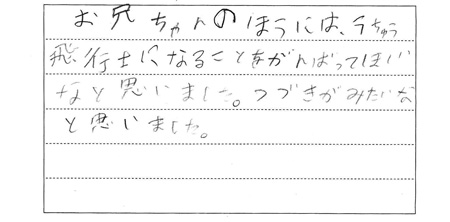 お兄ちゃんのほうには、うちゅう
飛行士になることをがんばってほしい
なと思いました。つづきがみたいな
と思いました。